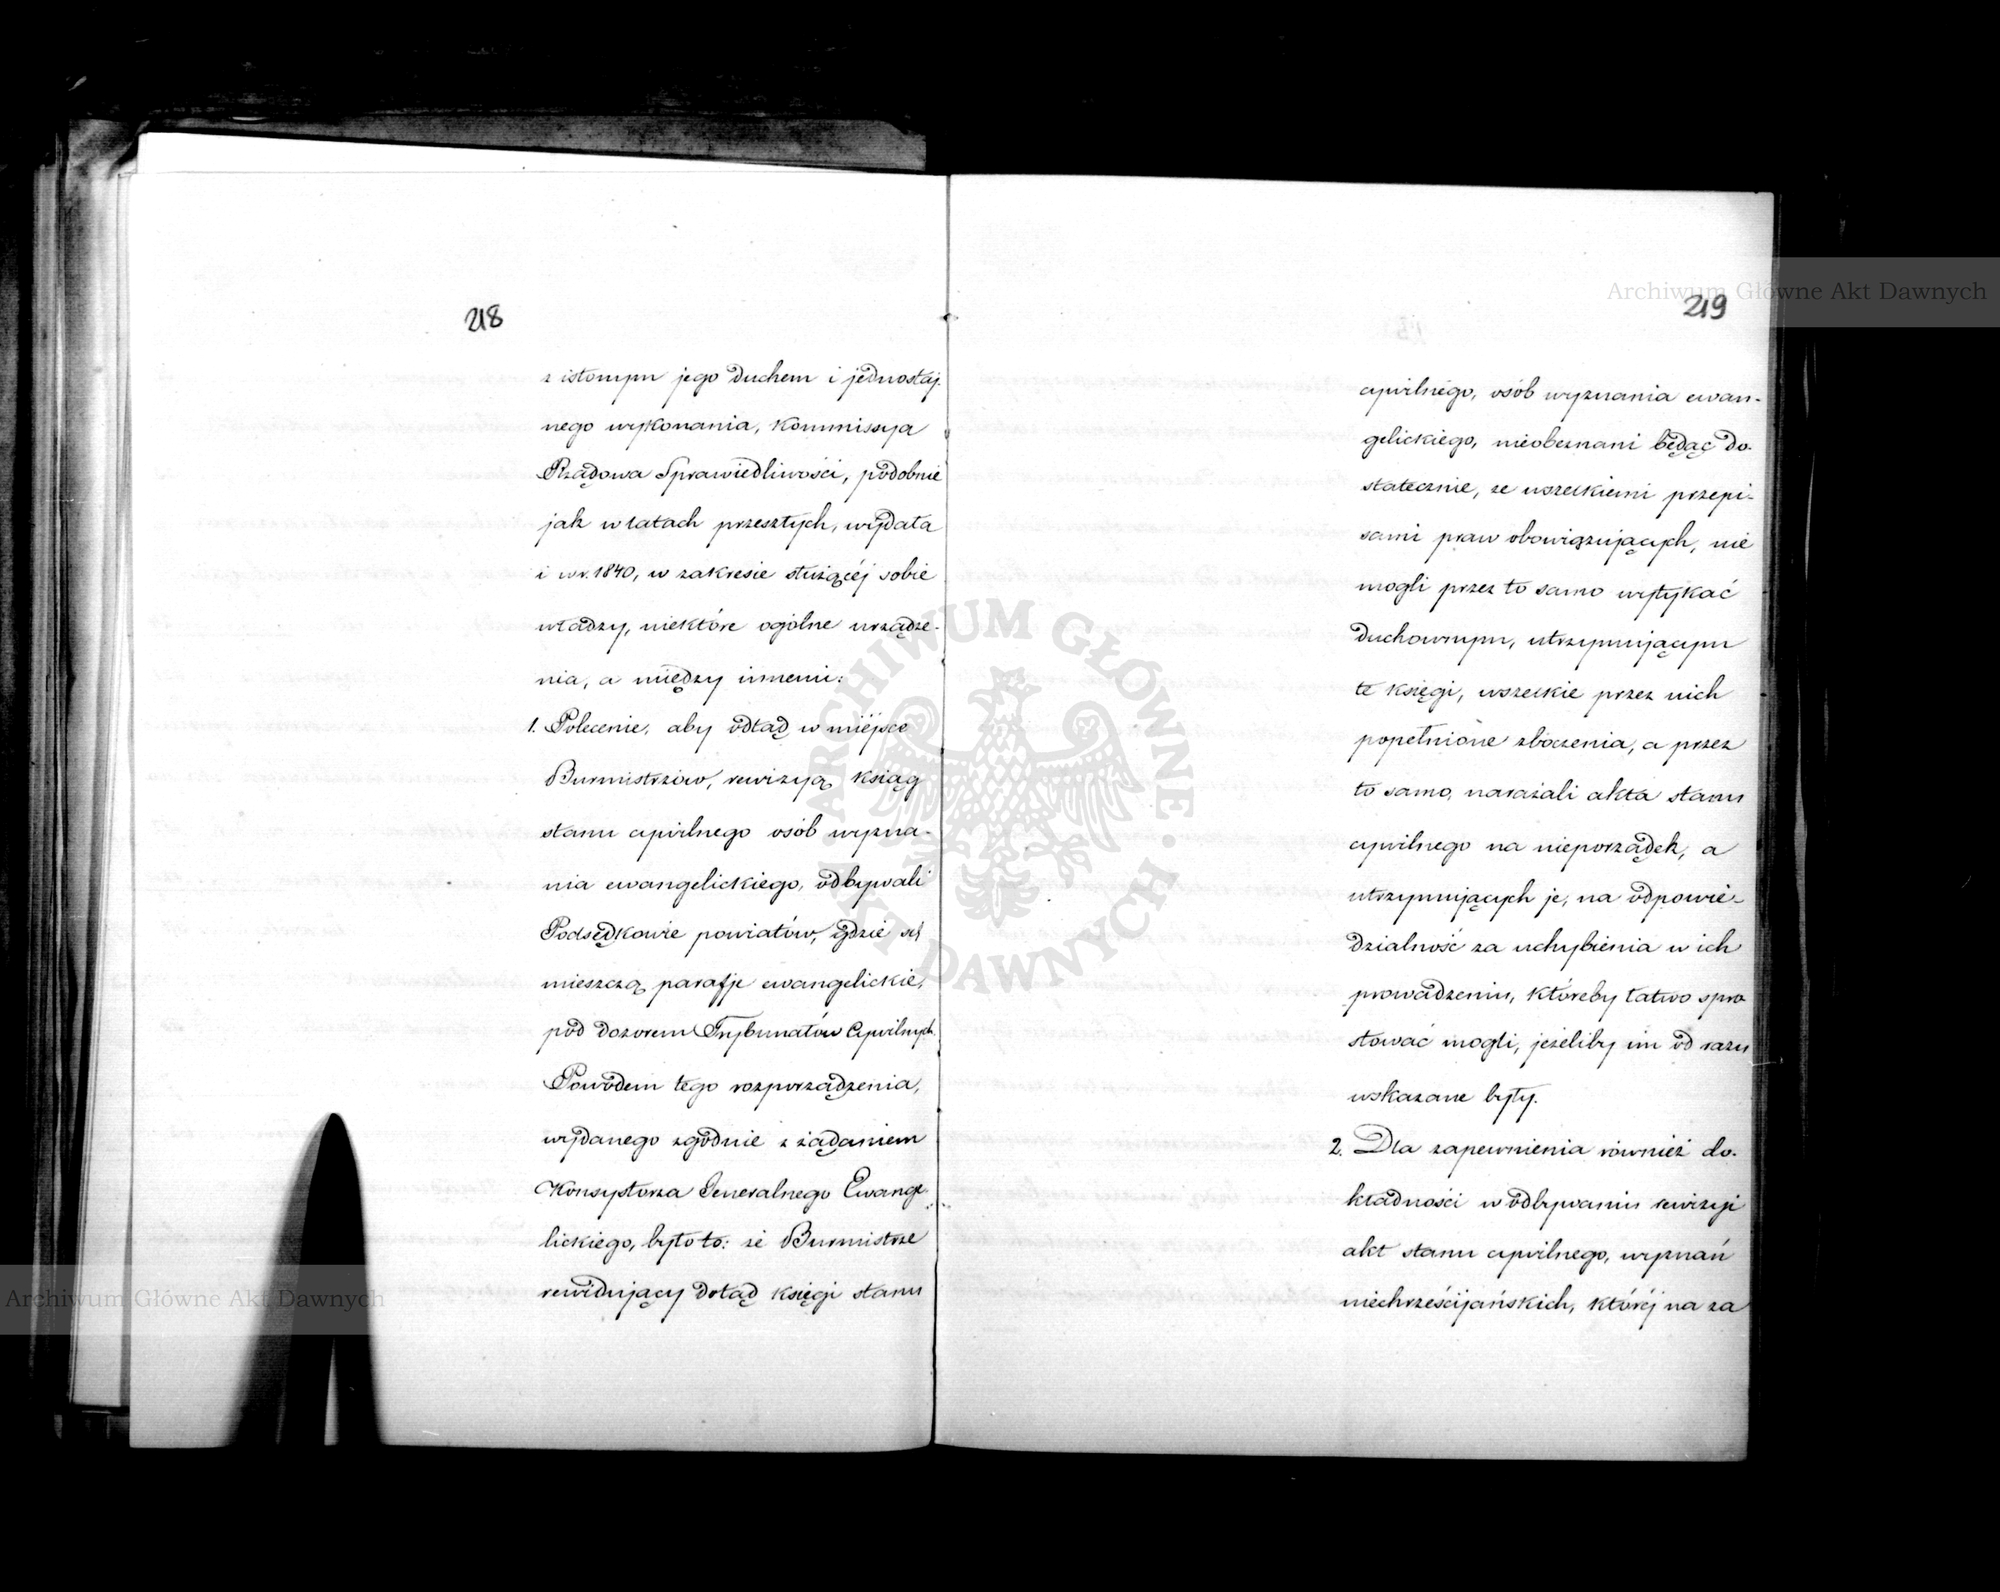 218
z istotnym jego duchem i jednostaj-
nego wykonania, Kommissya
Rządowa Sprawiedliwości, podobnie
jak w latach przeszłych, wydała
i w r. 1840, w zakresie służącéj sobie
władzy, niektóre ogólne urządze-
nia, a między innemi:
1. Polecenie, aby odtąd w miejsce
Burmistrzów, rewizyą ksiąg
stanu cywilnego osób wyzna-
nia ewangelickiego, odbywali
Podsędkowie powiatów, gdzie się
mieszczą parafje ewangelickie,
pod dozorem Trybunałów Cywilnych.
Powodem tego rozporządzenia,
wydanego zgodnie z żądaniem
Konsystorza Generalnego Ewange-
lickiego, było to: że Burmistrze
rewidujący dotąd księgi stanu
219
cywilnego, osób wyznania ewan-
gelickiego, nieobeznani będąc do-
statecznie, ze wszelkiemi przepi-
sami praw obowiązujących, nie
mogli przez to samo wytykać
duchownym, utrzymującym
te księgi, wszelkie przez nich
popełnione zboczenia, a przez
to samo, narażali akta stanu
cywilnego na nieporządek, a
utrzymujących je, na odpowie-
dzialność za uchybienia w ich
prowadzeniu, któreby łatwo spro-
stować mogli, jeżeliby im od razu
wskazane były.
2. Dla zapewnienia również do-
kładności w odbywaniu rewizyi
akt stanu cywilnego, wyznań
niechrześcijańskich, któréj na za
Archiwum Główne Akt Dawnych
Archiwum Główne Akt Dawnych
ARCHIWUM GŁÓWNE AKT DAWNYCH